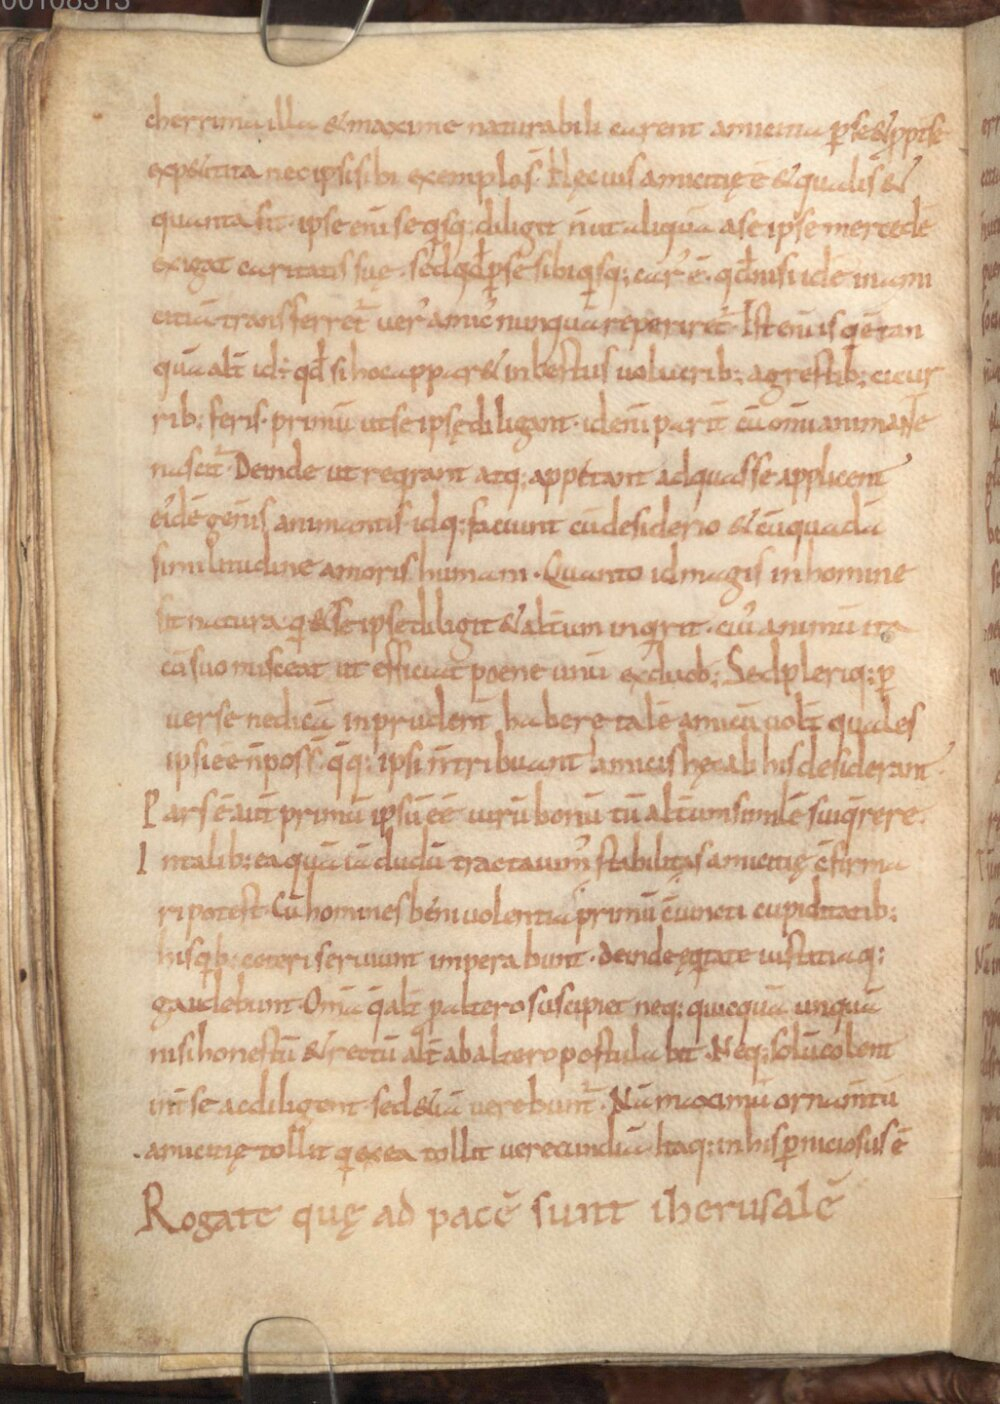 00108313
cherrima illa & maxime naturabili carent amicitia p̱ se & ppt̄ se
exp&tita nec ipsi sibi exemplo s̄. Hęc uis amicitię ē & qualis &
quanta sit. ipse eni se qsq; diligit n̄ ut aliquā a se ipse mercedē
exigat caritatis suę. sed qđ p̱ se sibi qsq; car' ē. qđ nisi idē in ami
citiā transferret̄ uer' amic' nunquā reperiret̄. Ist eni is q ē tan
quā alt̄ idē. qđ si hoc appar& in bestiis uolucrib; agrestib; cicur
rib; feris. primū ut se ipsę diligant. id eni parit̄ cū omī animante
nascit̄. Deinde ut reqrant atq; appetant ad quas se applicent
ei'dē gen̄is animantis. idq; faciunt cū desiderio & cū quadā
similitudine amoris humani. Quanto id magis in homine
fit natura q & se ipse diligit & alt̄um inqrit. cui' animū ita
cū suo misceat ut efficiat poene unū ex duob; Sed pleriq; p̱
uerse ne dicā inprudent̄ habere talē amicū uolt̄ quales
ipsi eē n̄ poss̄. q̄q; ipsi n̄ tribuant amicis hęc ab his desiderant.
Par s ē aut̄ primū ipsū eē uirū bonū tū alt̄um similē sui q̄rere.
In talib; ea quā iā dudū tractauim' stabilitas amicitię c̄firma
ri potest. Cū homines beniuolentia primū c̄iuncti cupiditatib;
his qb; ceteri seruiunt imperabunt. deinde ęqtate iustitiaq;
gaudebunt. Om̄ia q̄ alt̄ p altero suscipiet neq; quicquā unquā
nisi honestū & rectū alt̄ ab altero postulabit. Neq; solū colent
int̄ se ac diligent. sed & iā uerebunt̄. Nā maximū ornam̄tū
amicitię tollit q ex ea tollit uerecundiā. Itaq; in his p̱niciosus ē
Rogate quę ad pacē sunt iherusalē